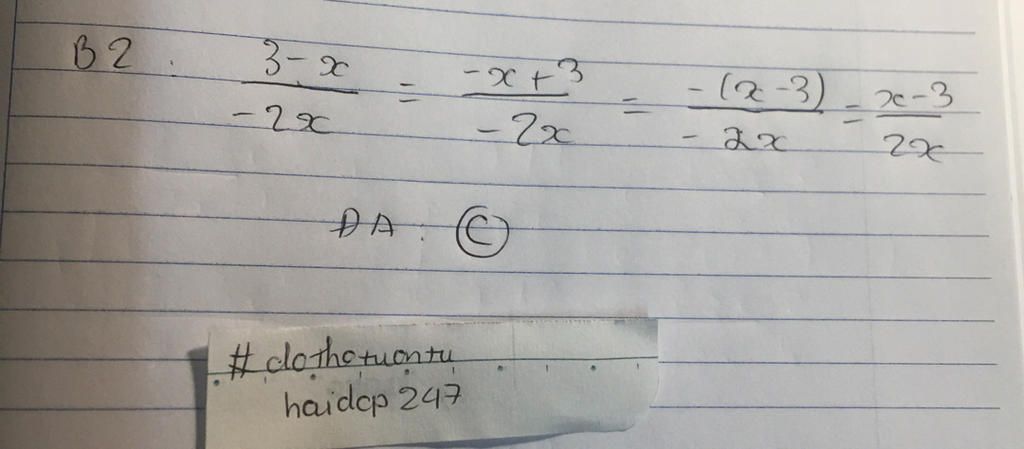 B2. 3-x / -2x = -x+3 / -2x = -(x-3) / -2x = x-3 / 2x
ĐA: C
#clothotuontu
haidcp247